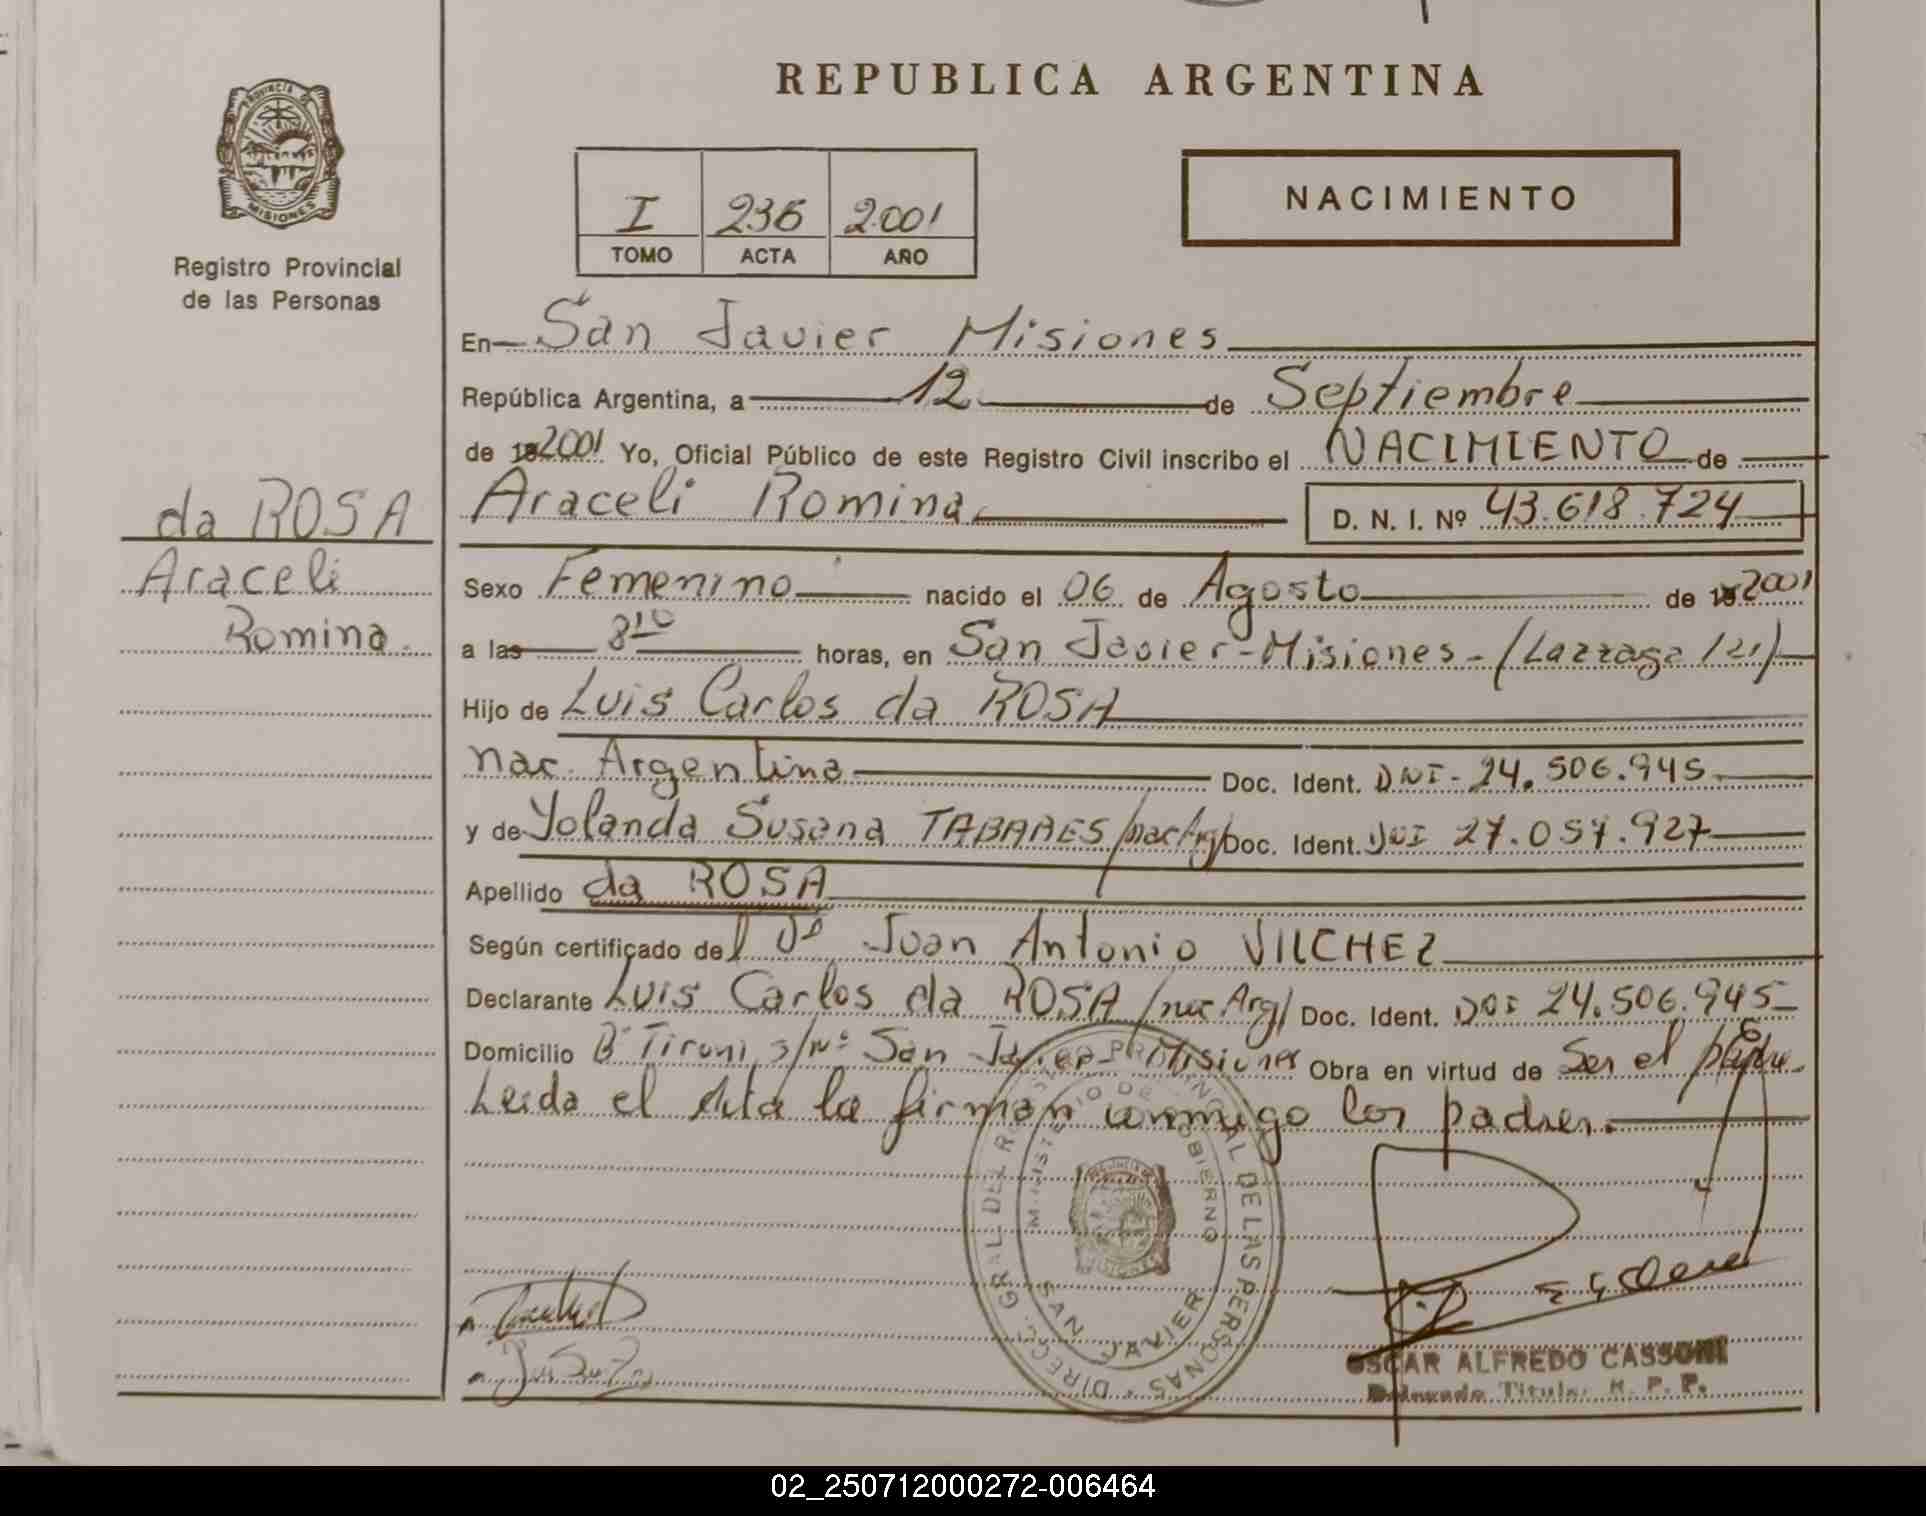 REPUBLICA ARGENTINA
PROVINCIA DE
MISIONES
Registro Provincial
de las Personas
I 236 2001
TOMO ACTA AÑO
NACIMIENTO
da ROSA
Araceli
Romina.
En San Javier Misiones
República Argentina, a 12 de Septiembre
de 2001 Yo, Oficial Público de este Registro Civil inscribo el NACIMIENTO de
Araceli Romina D. N. I. Nº 43.618.724
Sexo Femenino nacido el 06 de Agosto de 2001
a las 8 10 horas, en San Javier-Misiones-(
Hijo de Luis Carlos da ROSA
nac. Argentina Doc. Ident. DNI- 24.506.945
y de Yolanda Susana TABARES /nac Arg/ Doc. Ident. DNI 27.057.927
Apellido da ROSA
Según certificado del Juan Antonio VILCHEZ
Declarante Luis Carlos da ROSA /nac Arg/ Doc. Ident. DNI 24.506.945
Domicilio Bº Tironi s/nº San Javier Misiones Obra en virtud de Ser el padre.
Leida el Acta la firman conmigo los padres.
DIRECC. GRAL. DEL REGISTRO PROVINCIAL DE LAS PERSONAS
MINISTERIO DE GOBIERNO
SAN JAVIER
OSCAR ALFREDO CASSONI
Delegado Titular R. P. P.
02_250712000272-006464